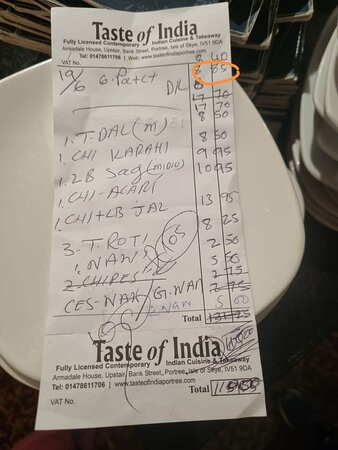 Taste of India
Fully Licensed Contemporary Indian Cuisine & Takeaway
Armadale House, Upstair, Bank Street, Portree, Isle of Skye, IV51 9DA
Tel: 01478611706 | Web: www.tasteofindiaportree.com
VAT No.
8 40
19/6 6. 8 85
D/L
17 70
17 70
8 50
1. T-DAL (m) 8 50
1. CHI KARAHI 9 95
1. LB Sag (m) 10 95
1. CHI-ACARI
13 95
1. CHI+LB JAL 8 25
3. T. ROTI 7 50
1. NAN 2 50
2 CHIPES 2 75
CES-NAN G. NAN 2 75
NAN 5 00
Total 131-75
Taste of India
Fully Licensed Contemporary Indian Cuisine & Takeaway
Armadale House, Upstair, Bank Street, Portree, Isle of Skye, IV51 9DA
Tel: 01478611706 | www.tasteofindiaportree.com
VAT No.
Total